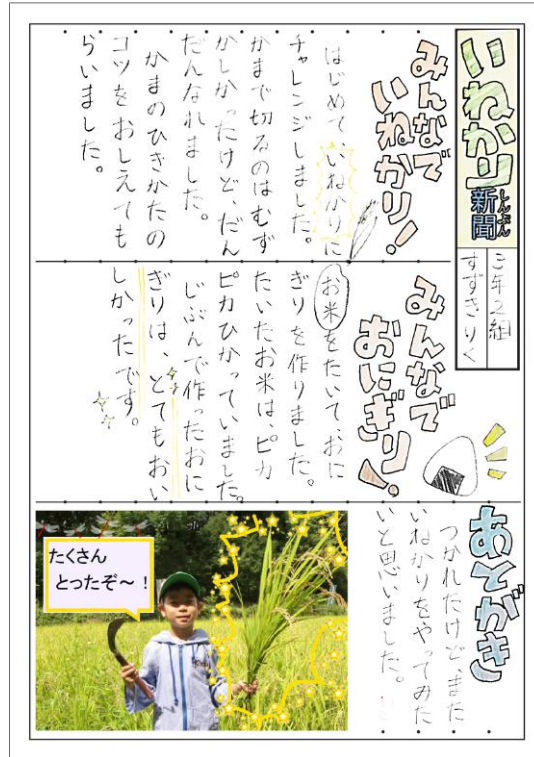 いねかり
しんぶん
新聞
三年2組
すずきりく
みんなで
いねかり！
はじめていねかりに
チャレンジしました。
かまで切るのはむず
かしかったけど、だん
だんなれました。
かまのひきかたの
コツをおしえても
らいました。
みんなで
おにぎり！
お米をたいて、おに
ぎりを作りました。
たいたお米は、ピカ
ピカひかっていました。
じぶんで作ったおに
ぎりは、とてもおい
しかったです。
あとがき
つかれたけど、また
いねかりをやってみた
いと思いました。
たくさん
とったぞ～！